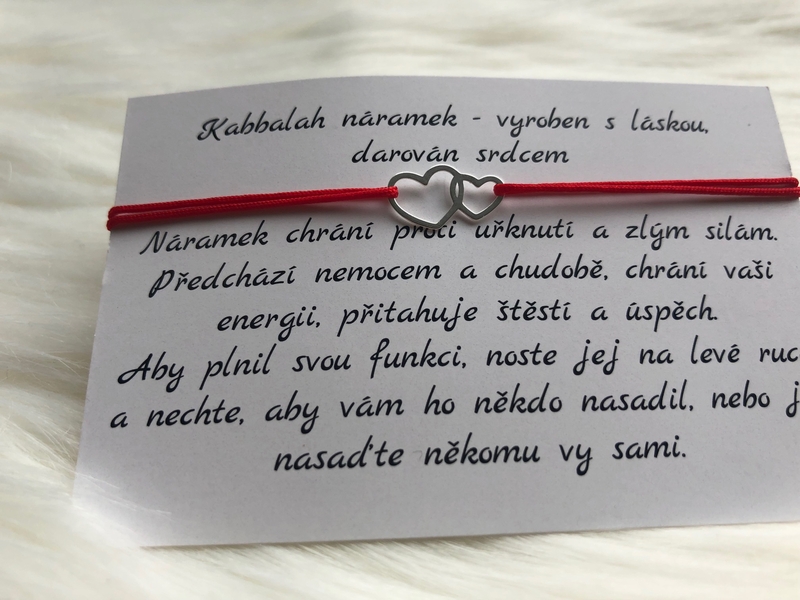 Kabbalah náramek - vyroben s láskou,
darován srdcem
Náramek chrání proti uřknutí a zlým silám.
Předchází nemocem a chudobě, chrání vaši
energii, přitahuje štěstí a úspěch.
Aby plnil svou funkci, noste jej na levé ruc
a nechte, aby vám ho někdo nasadil, nebo j
nasaďte někomu vy sami.